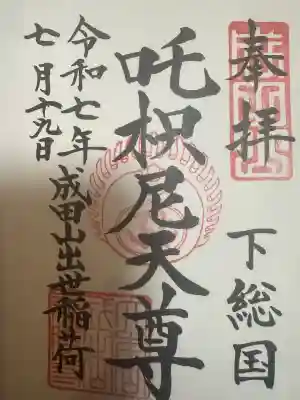 奉拝
下総国
吒枳尼天尊
成田山出世稲荷
令和七年
七月十九日